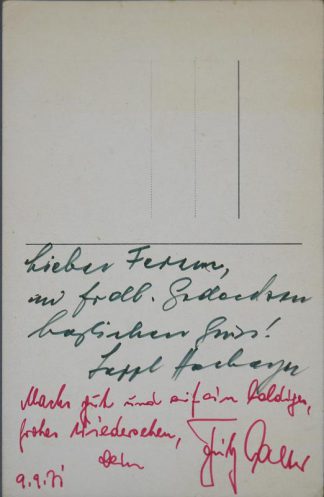 Lieber Ferenc,
in frdl. Gedenken
herzlichen Gruss!
Sappl
Machs gut und auf ein baldiges,
frohes Wiedersehen,
Dein Fritz
9.9.71